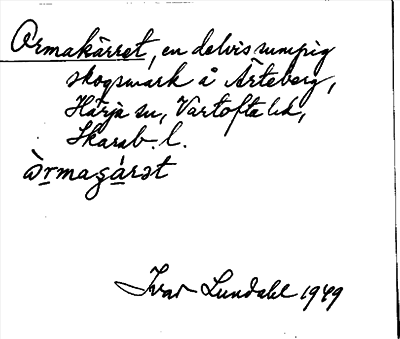 Ormakärret, en delvis sumpig
skogsmark å Ärteberg,
Härja sn, Vartofta hd,
Skarab. l.
òrmaçárət
Ivar Lundahl 1949